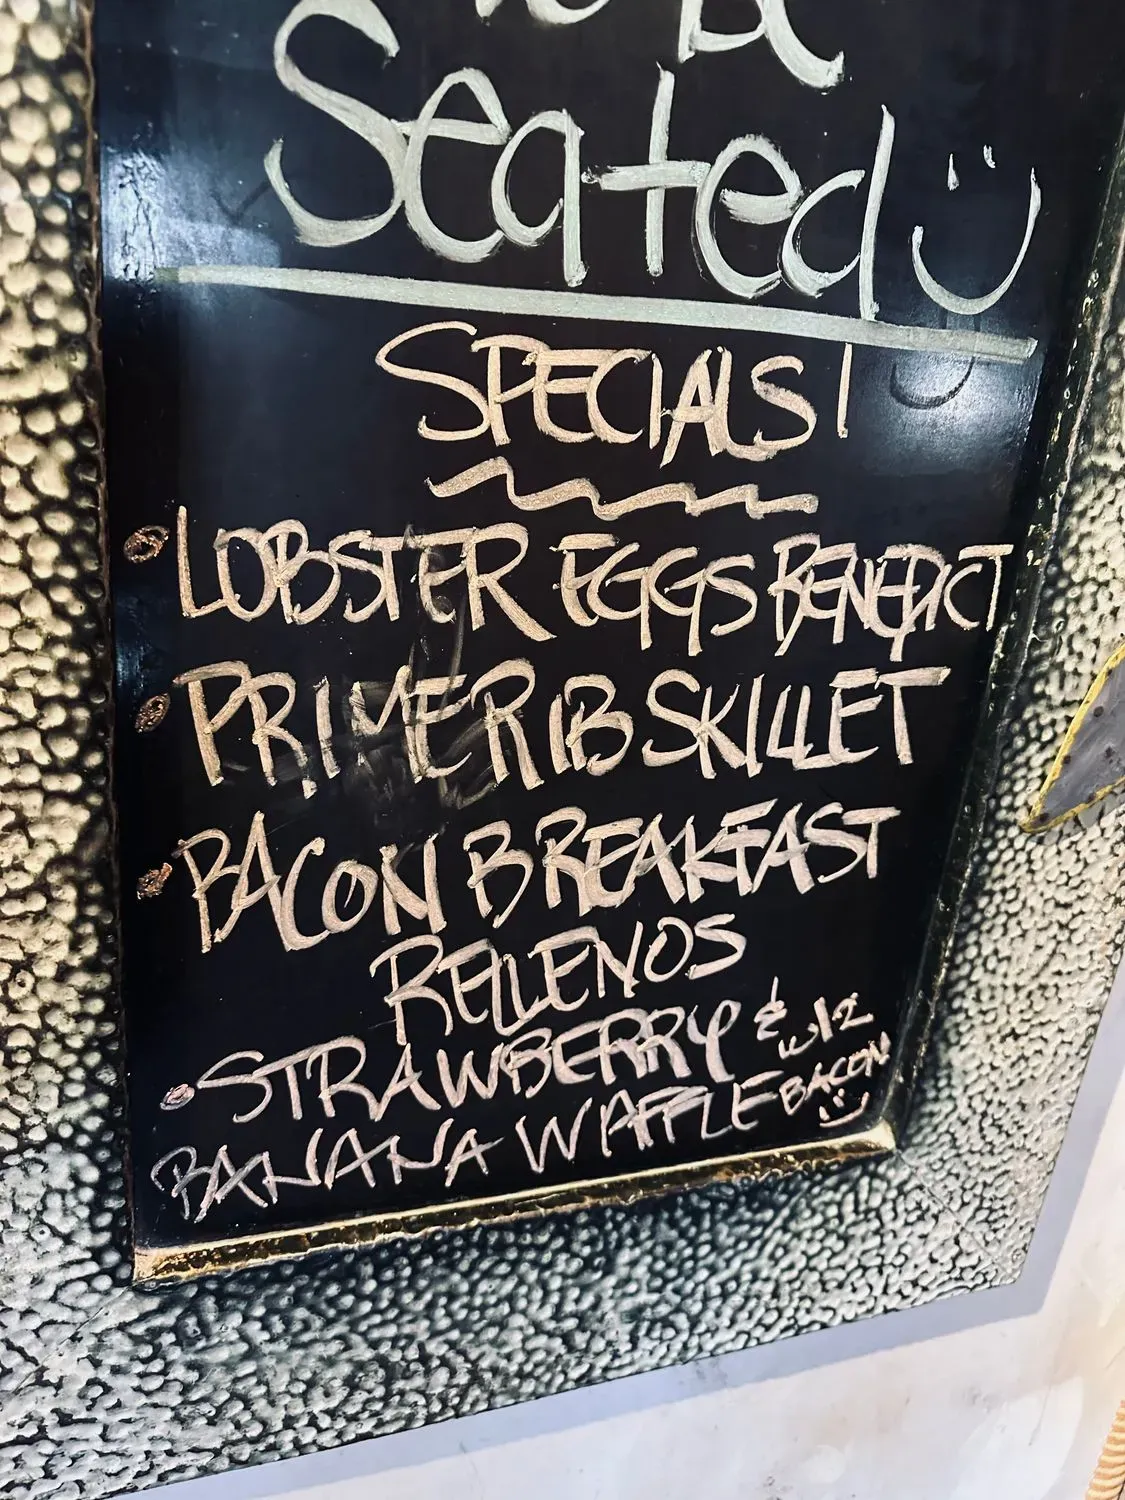 Seated
SPECIALS!
LOBSTER EGGS BENEDICT
PRIME RIB SKILLET
BACON BREAKFAST
RELLENOS
STRAWBERRY &
BANANA WAFFLE
w/2
BACON